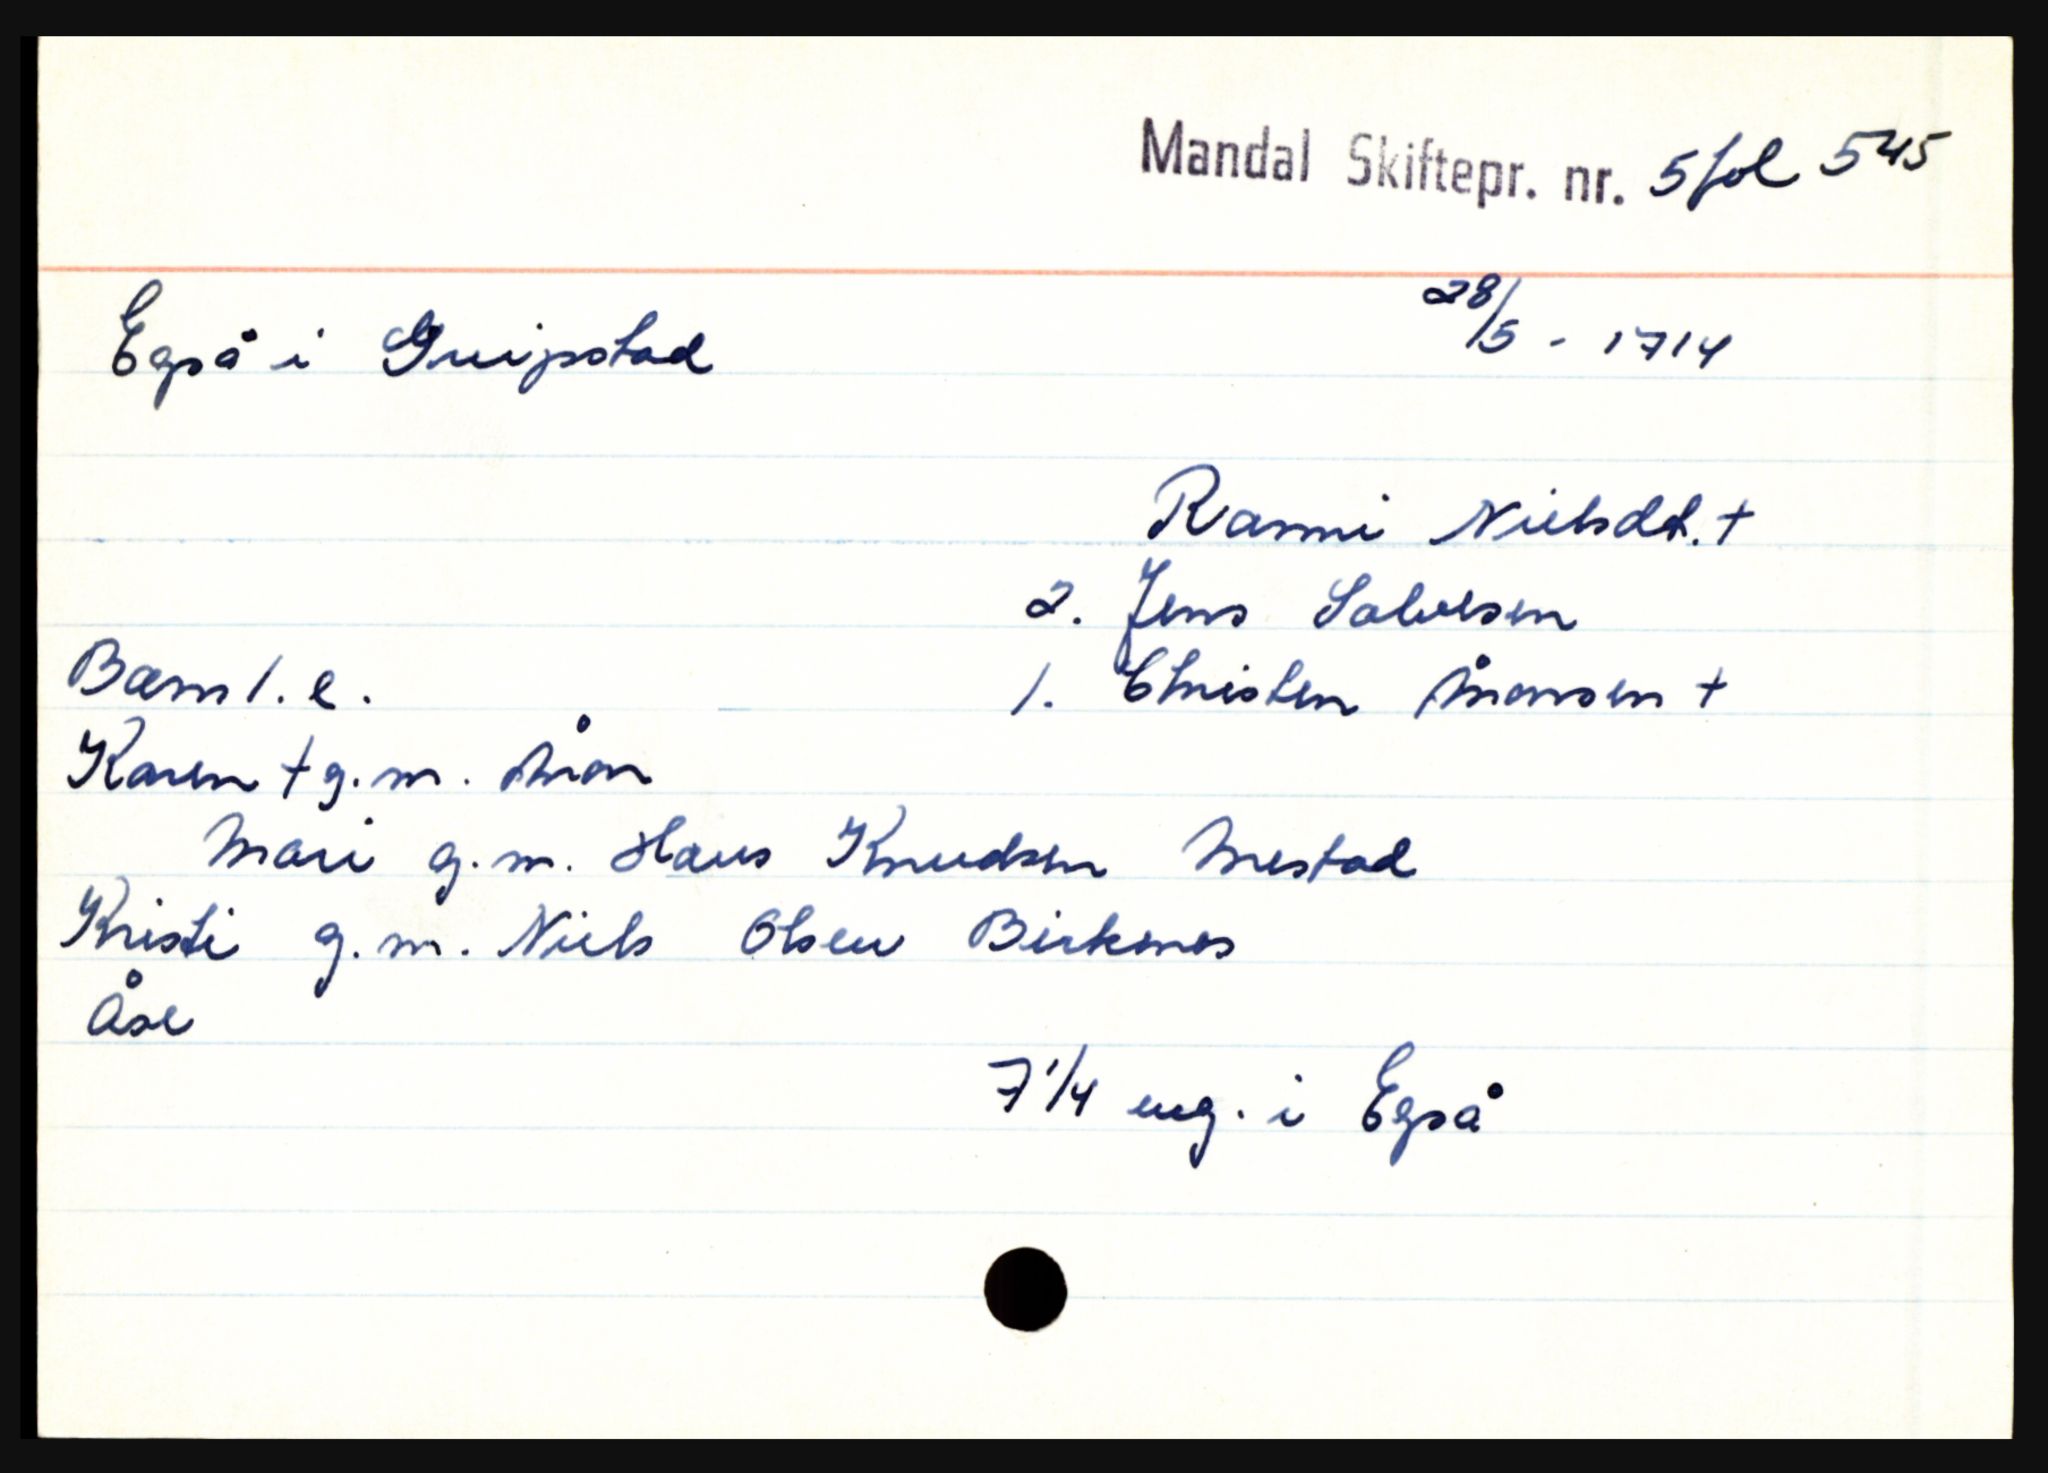 Mandal Skiftepr. nr. 5 fol 545
Egså i Greipstad 28/5 - 1714
Ranni Nielsdt. +
2. Jens Salvesen
Barn 1. e. 1. Christen Monsen +
Karen + g. m. Mon
Mari g. m. Hans Knudsen Mestad
Kristi g. m. Niels Olsen Birkenes
Åse
7 1/4 eng. i Egså